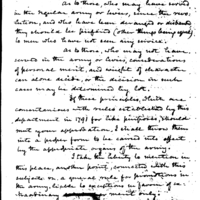 As to those, who may have served
in the regular army or levies, since the revo-
lution, and who have been deranged or disbanded
they should be preferred (other things being equal)
to men who have not seen any service.
As to those, who may not have
served in the army or levies, considerations
of personal merit, and weight of character
can alone decide, or the decision in such
cases may be determined by lot.
If these principles, which are
consentaneous with rules established by this
department in 1791 for like purposes, should
meet your approbation, I shall throw them
into a proper form to be carried into effect
by the appropriate organs of the army.
I take the liberty to mention in
this place, another point, connected with this
subject, as a general rule for promotions in
the army, liable to exceptions in favor of